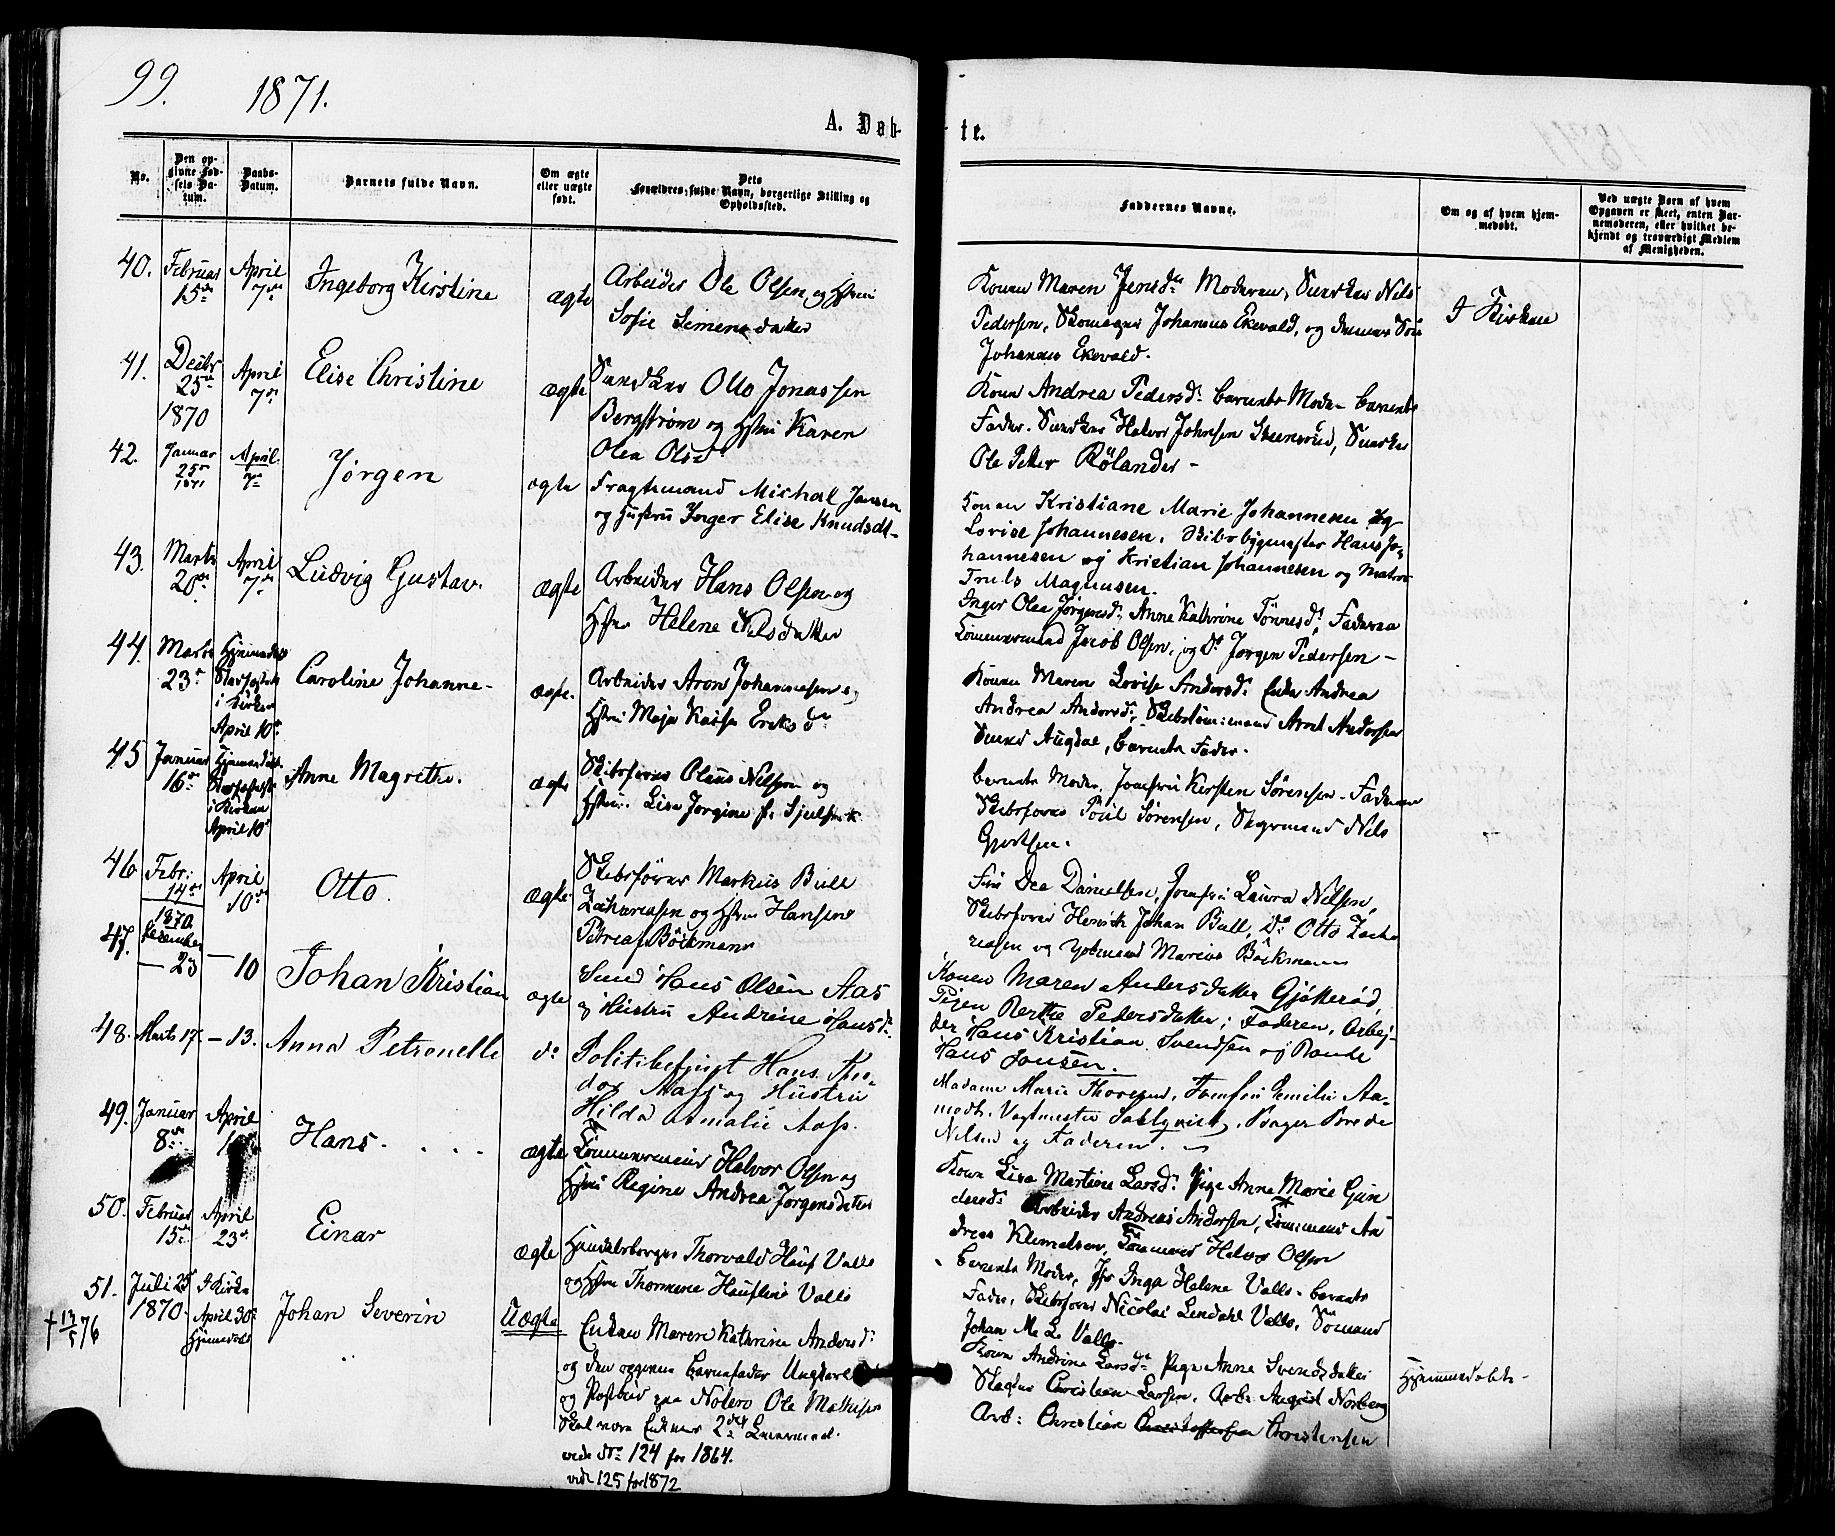 99. 1871.
A. Døb-
te.
No.
Den op-
givne Fød-
sels Da-
tum.
Daabs-
Datum.
Barnets fulde Navn.
Om ægte
eller uægte
født.
Dets
Forældres fulde Navn, borgerlige Stilling og
Opholdssted.
Faddernes Navne.
Om og af hvem hjem-
medøbt.
Ved uægte Born af hvem
Opgaven er skeet, enten Bar-
nemoderen, eller hvilket be-
kjendt og troværdigt Medlem
af Menigheden.
40. Februar 15de April 7de Ingeborg Kirstine ægte Arbeider Ole Olsen og Hstru
Sofie Simensdatter
Konen Maren Jensdr Moderen, Snedker Nils
Pedersen, Skomager Johannes Ekevald, og dennes Søn
Johannes Ekevald.
I Kirken
41. Decbr 25de 1870 April 7de Elise Christine ægte Snedker Otto Jonassen
Bergstrøm og Hstru Karen
Olea Olsd
Kone Andrea Pedersdr barnets Moder barnets
Fader. Snedker Halvor Johnsen Steensrud, Snedker
Ole Petter Rölander -
42. Januar 25de 1871 April 7de Jørgen ægte Fragtemand Michael Jansen
og Hustru Inger Elise Knudsdt-
Konen Kristiane Marie Johannesen og
Lovise Johannesen. Skibsbygmester Hans Jo-
hannesen og Kristian Johannesen og Matros
Truls Magnusen.
43. Marts 20de April 7de Ludvig Gustav. ægte Arbeider Hans Olsen og
Hstru Helene Nilsdatter
Inger Olea Jørgensdr, Anne Kathrine Tønnesdr, Faderen
Tømmermand Jacob Olsen, og Do Jørgen Pedersen -
44. Marts 23de Hjemmedøbt
Stadfæstet
i Kirken
April 10de Caroline Johanne- ægte. Arbeider Aron Johannesen og
Hstru Maja Kaisa Eriksdr
Konen Maren Lovise Andersdr Enke Andrea
Andrea Andersdr, Skibstømmermand Arnt Andersen
Smed Augdal, barnets Fader.
45 Januar 16de Hjemmedøbt
Stadfæstet
i Kirken
April 10de Anne Magrethe. ægte Skibsfører Olaus Nilsen og
Hstru Lisa Jørgine f.
barnets Moder, Jomfru Kirsten Sørensen - Faderen
Skibsfører Poul Sørensen, Styrmand Nils
Gjertsen.
46 Febr: 14de April 10de Otto. ægte Skibsfører Markus Bull
Zachariasen og Hstru Hansine
Petrea f. Böckmann
Fru Dea Danielsen, Jomfru Laura Nilsen,
Skibsfører Henrik Johan Bull, Do Otto Zacha
riasen og Marius Böckmann
47. 1870 December
- 23 - 10 Johan Kristian ægte Smed Hans Olsen Aas
og Hustru Andrine Hansdr.
Konen Maren Andersdatter Gjötterød,
Pigen Berthe Pedersdatter; Faderen, Arbej-
der Hans Kristian Svendsen og Bonde
Hans Jansen.
48. Marts 17. - 13. Anna Petronelle do Politibetjent Hans Theo-
dor Aass og Hustru
Hilda Amalie Aass.
Madame Marie Thoresen, Jomfru Emilie Aa-
modt. Vagtmester Sahlqvist, Bager Brede
Nilsen og Faderen.
49. Januar 8de April Hans. . . . ægte Tømmermand Halvor Olsen og
Hstru Regine Andrea Jørgensdatter
Kone Lisa Martine Larsdr Pige Anne Marie Gun
dersdr Arbeider Andreas Andersen, Tømmermand An
dreas Klemetsen, Tømmermand Halvor Olsen
50. Februar 15de April 23de Einar ægte Handelsborger Thorvald Hauf Valle
og Hstru Thormine Valle
barnets Moder, Jfr Inga Helene Valle - barnets
Fader, Skibsfører Nicolai Lindahl Valle, Sömand
Johan M. L. Valle.
51. Juli 25de 1870. I Kirken
April 30te
Hjemmedøbt Johan Severin Uægte Enken Maren Kathrine Andersdr.
og den opgivne Barnefader Ungkarl
og Postbud paa Nøterø Ole Mathisen
Skal være Enkens 2det Leiermaal.
vide No 124 for 1864.
vide 125 for 1872
Kone Andrine Larsdr Pige Anne Svendsdatter
Slagter Christian Larsen, Arb: August Norberg
Arb: Christian Christoffersen Christensen
Hjemmedøbt-
† 13/5 76